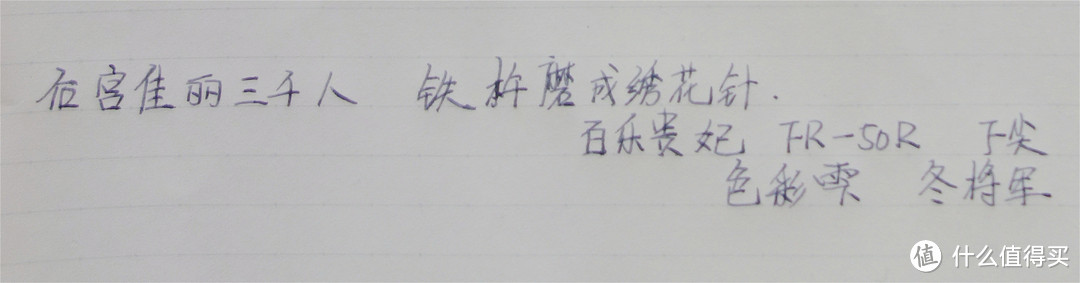 后宫佳丽三千人 铁杵磨成绣花针.
百乐贵妃 FR-50R F尖
色彩雫 冬将军
值 什么值得买